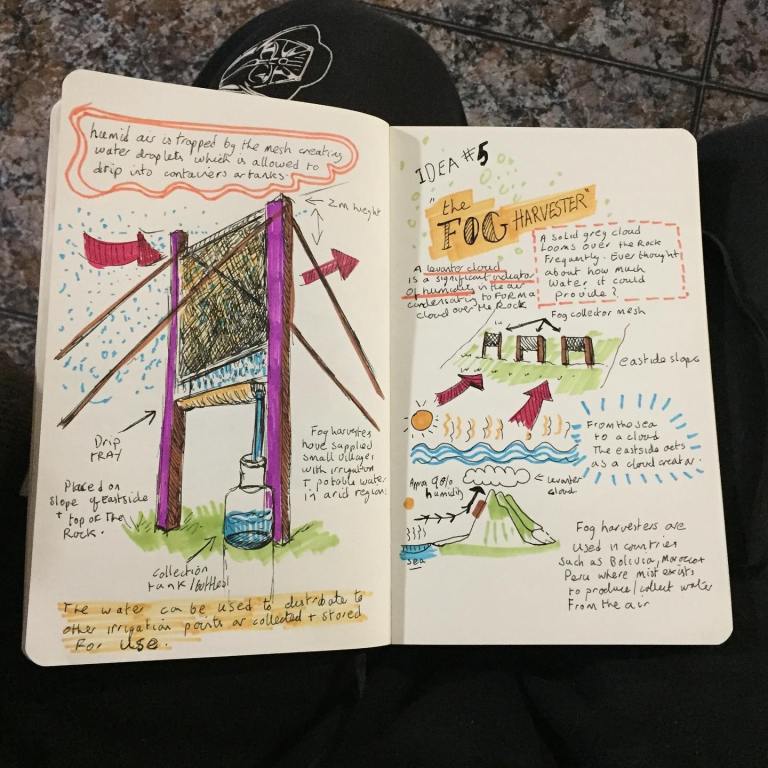 humid air is trapped by the mesh creating
water droplets which is allowed to
drip into containers or tanks.
2m height
Drip
TRAY
Placed on
slope of eastside
+ top of The
Rock.
Fog harvesters
have supplied
small villages
with irrigation
+ potable water
in arid regions
collection
tank/bottles
The water can be used to distribute to
other irrigation points or collected + stored
For use.
IDEA #5
"the
FOG HARVESTER"
A solid grey cloud
Looms over the Rock
Frequently. Ever thought
about how much
water it could
provide?
A levanter cloud
is a significant indicator
of humidity in the air
condensating to FORM a
cloud over the Rock
Fog collector mesh
eastside slopes
From the sea
to a cloud
The eastside acts
as a cloud creator.
90%
humidity
levanter
cloud
sea
Fog harvesters are
used in countries
such as Bolivia, Morocco +
Peru where mist exists
to produce/collect water
From the air